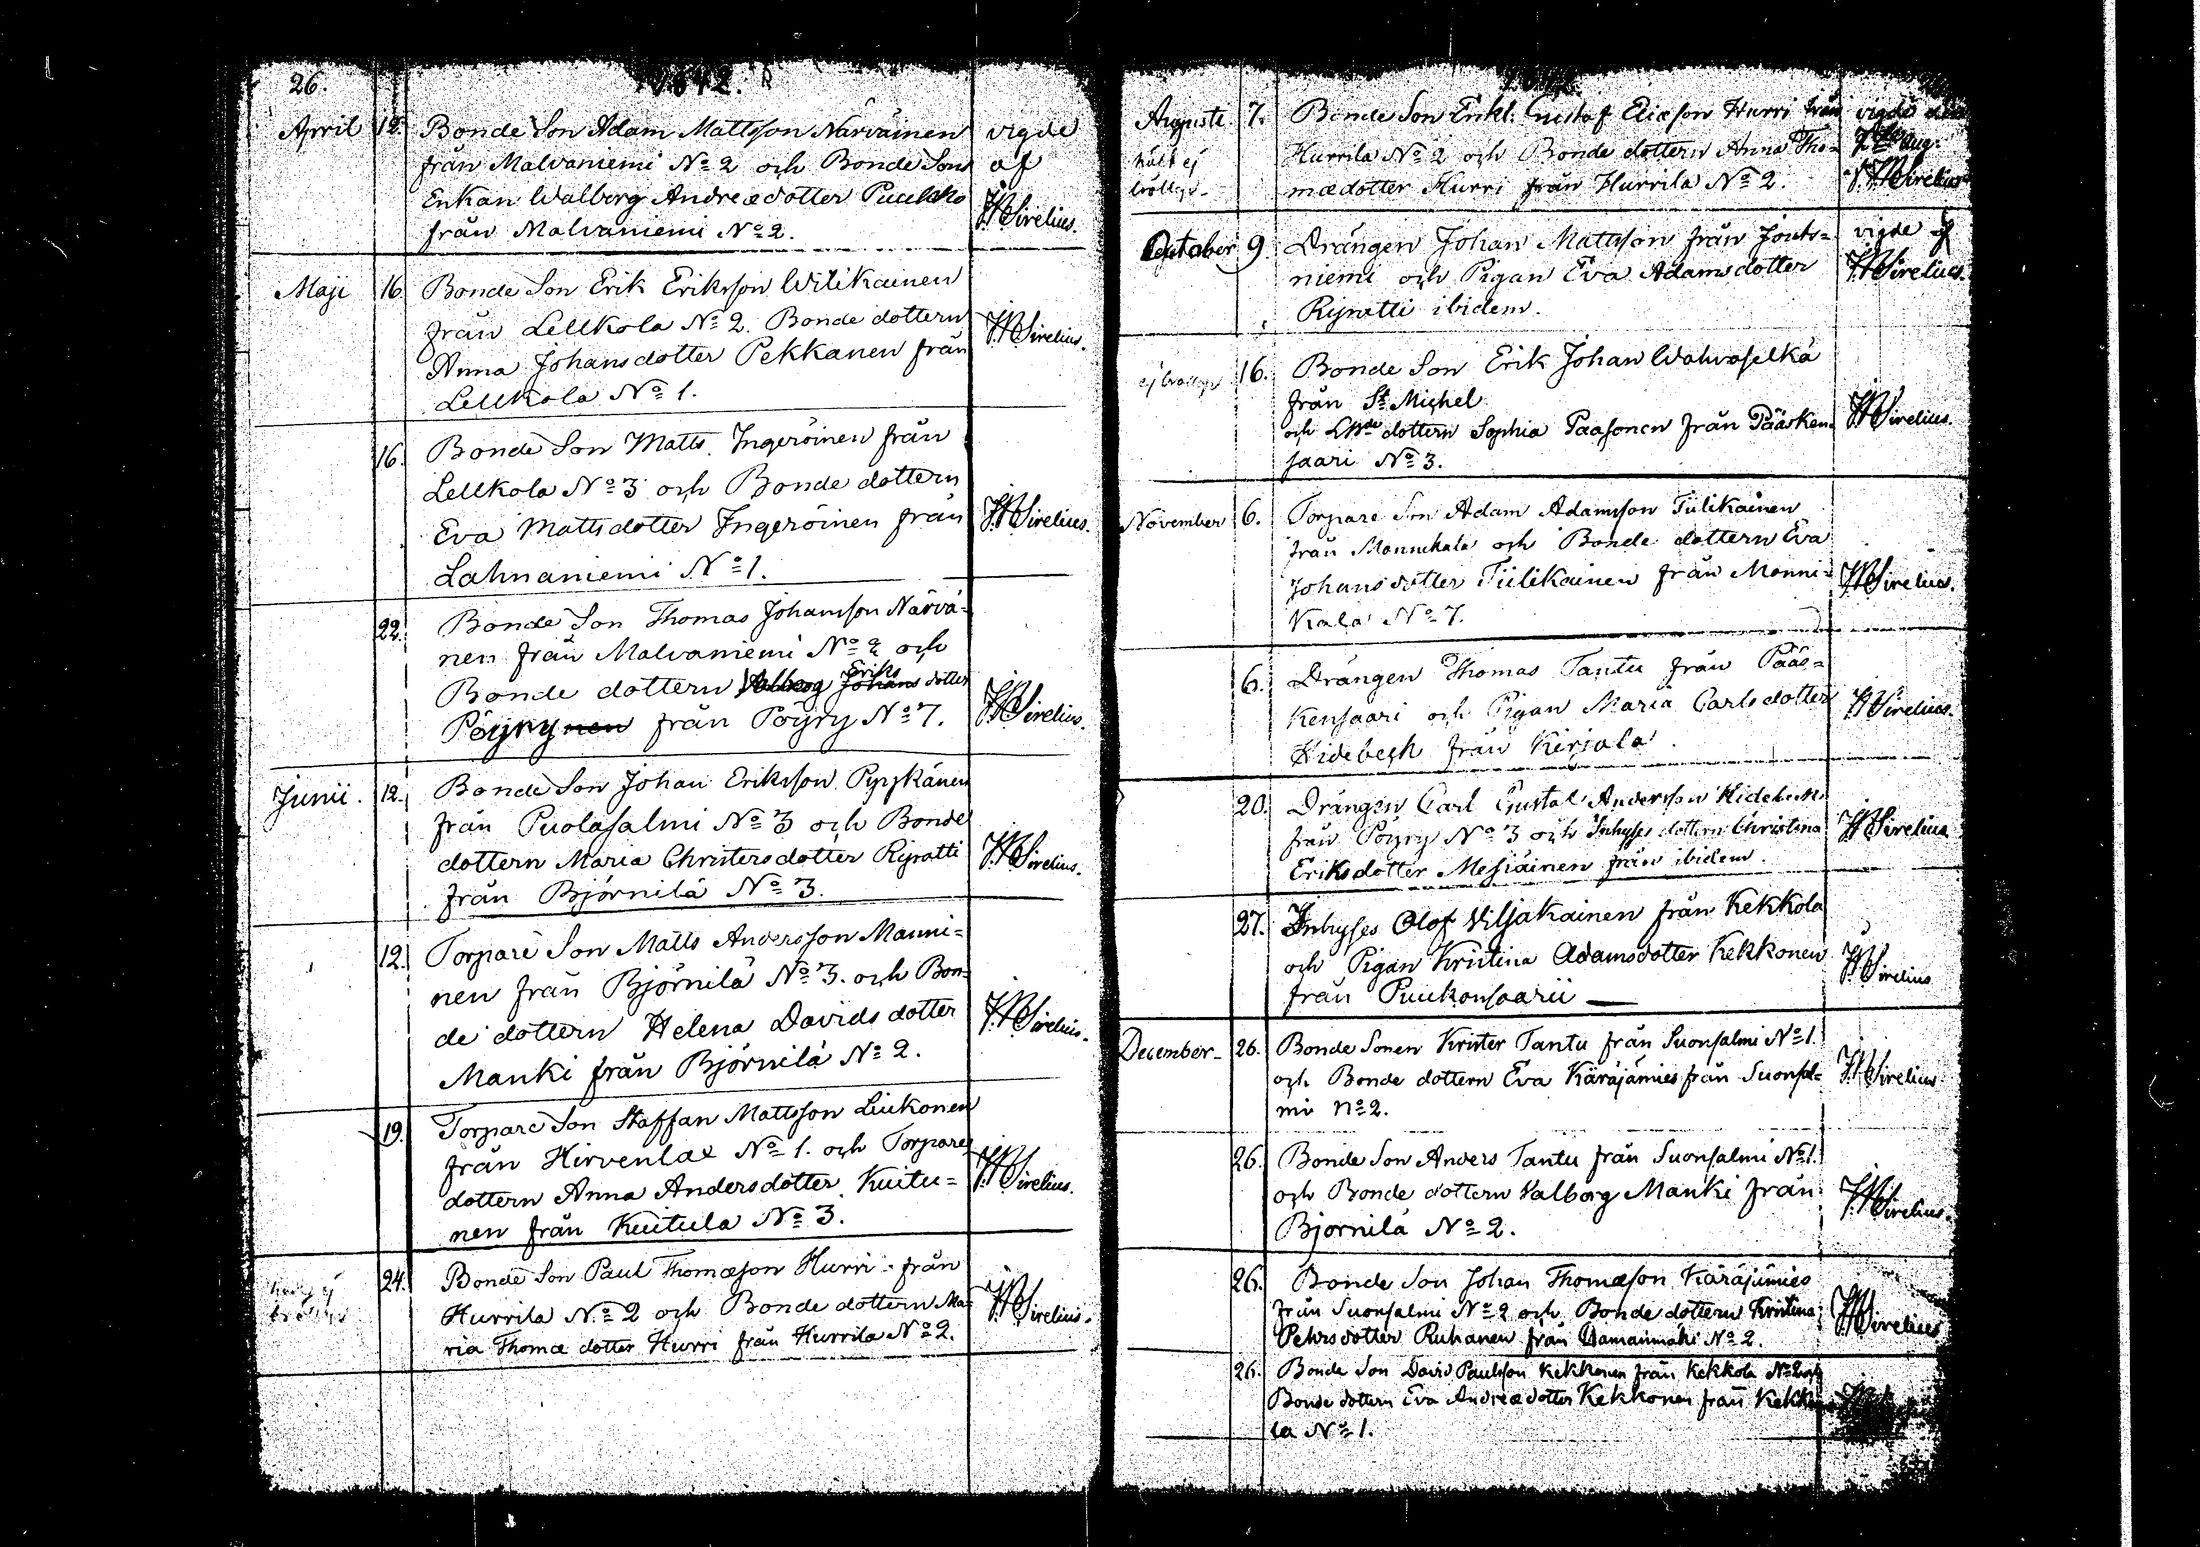 26.
1842.
April 12. Bonde Son Adam Mattsson Närväinen vigde
från Malvaniemi No 2 och Bonde Sons af
Enkan Walborg Andreædotter Puukko J.W.Sirelius.
från Malvaniemi No 2.
Maji 16 Bonde Son Erik Eriksson Wilikainen
från Lellkola No 2. Bonde dottern J.W.Sirelius.
Anna Johansdotter Pekkanen från
Lellkola No 1.
16. Bonde Son Matts Ingeröinen från
Lellkola No 3 och Bonde dottern
Eva Mattsdotter Ingeröinen från J.W.Sirelius.
Lahnaniemi No 1.
22. Bonde Son Thomas Johansson Närvä-
nen från Malvaniemi No 2 och
Eriks
Bonde dottern Valborg Johans dotter
Pöyrynen från Pöyry No 7. J.W.Sirelius.
Junii. 12. Bonde Son Johan Eriksson Pypskänen
från Puolasalmi No 3 och Bonde
dottern Maria Christersdotter Ryratti J.W.Sirelius.
från Björnilä No 3.
12. Torpare Son Matts Andersson Manni-
nen från Björnilä No 3. och Bon-
de dottern Helena Davids dotter J.W.Sirelius.
Manki från Björnilä No 2.
19. Torpare Son Staffan Mattsson Liukonen
från Hirvenlax No 1. och Torpare
dottern Anna Andersdotter Kuitu- J.W.Sirelius.
nen från Kuitula No 3.
24. Bonde Son Paul Thomæson Hurri från
Hurrila No 2 och Bonde dottern Ma- J.W.Sirelius.
ria Thomæ dotter Hurri från Hurrila No 2.
Auguste 7. Bonde Son Enkl. Gustaf Eliæson Hurri från vigde den
håll ej Hurrila No 2 och Bonde dottern Anna Tho- 7 Aug.
bröllop. mædotter Hurri från Hurrila No 2. J.W.Sirelius
October 9. Drängen Johan Mattsson från Jouts- vigde af
niemi och Pigan Eva Adamsdotter J.W.Sirelius.
Ryratti ibidem.
ej bröllop 16. Bonde Son Erik Johan Wahvaselkä
från St Michel J.W.Sirelius.
och dottern Sophia Paasonen från Pääsken-
saari No 3.
November 6. Torpare Son Adam Adamsson Tiilikainen
från Mannikala och Bonde dottern Eva
Johansdotter Tiilikainen från Manni- J.W.Sirelius.
kala No 7.
6. Drängen Thomas Tantu från Pääs-
kensaari och Pigan Maria Carlsdotter J.W.Sirelius.
Hidebech från Kirjala.
20. Drängen Carl Gustaf Andersson Hidebeck
från Pöyry No 3 och Inhyses dottern Christina J.W.Sirelius
Eriksdotter Mesiäinen från ibidem.
27. Inhyses Olof Viljakainen från Kekkola
och Pigan Kristina Adamsdotter Kekkonen J.W.Sirelius
från Puukonsaari
December 26. Bonde Sonen Krister Tantu från Suonsalmi No 1.
och Bonde dottern Eva Käräjämies från Suonsal- J.W.Sirelius
mi No 2.
26. Bonde Son Anders Tantu från Suonsalmi No 1.
och Bonde dottern Valborg Manki från J.W.Sirelius.
Björnilä No 2.
26. Bonde Son Johan Thomæson Käräjämies
från Suonsalmi No 2 och Bonde dottern Kristina J.W.Sirelius
Pehrsdotter Ruhanen från No 2.
26. Bonde Son David Paulsson Kekkonen från Kekkola No 2 och
Bonde dottern Eva Andreædotter Kekkonen från Kekko-
la No 1.